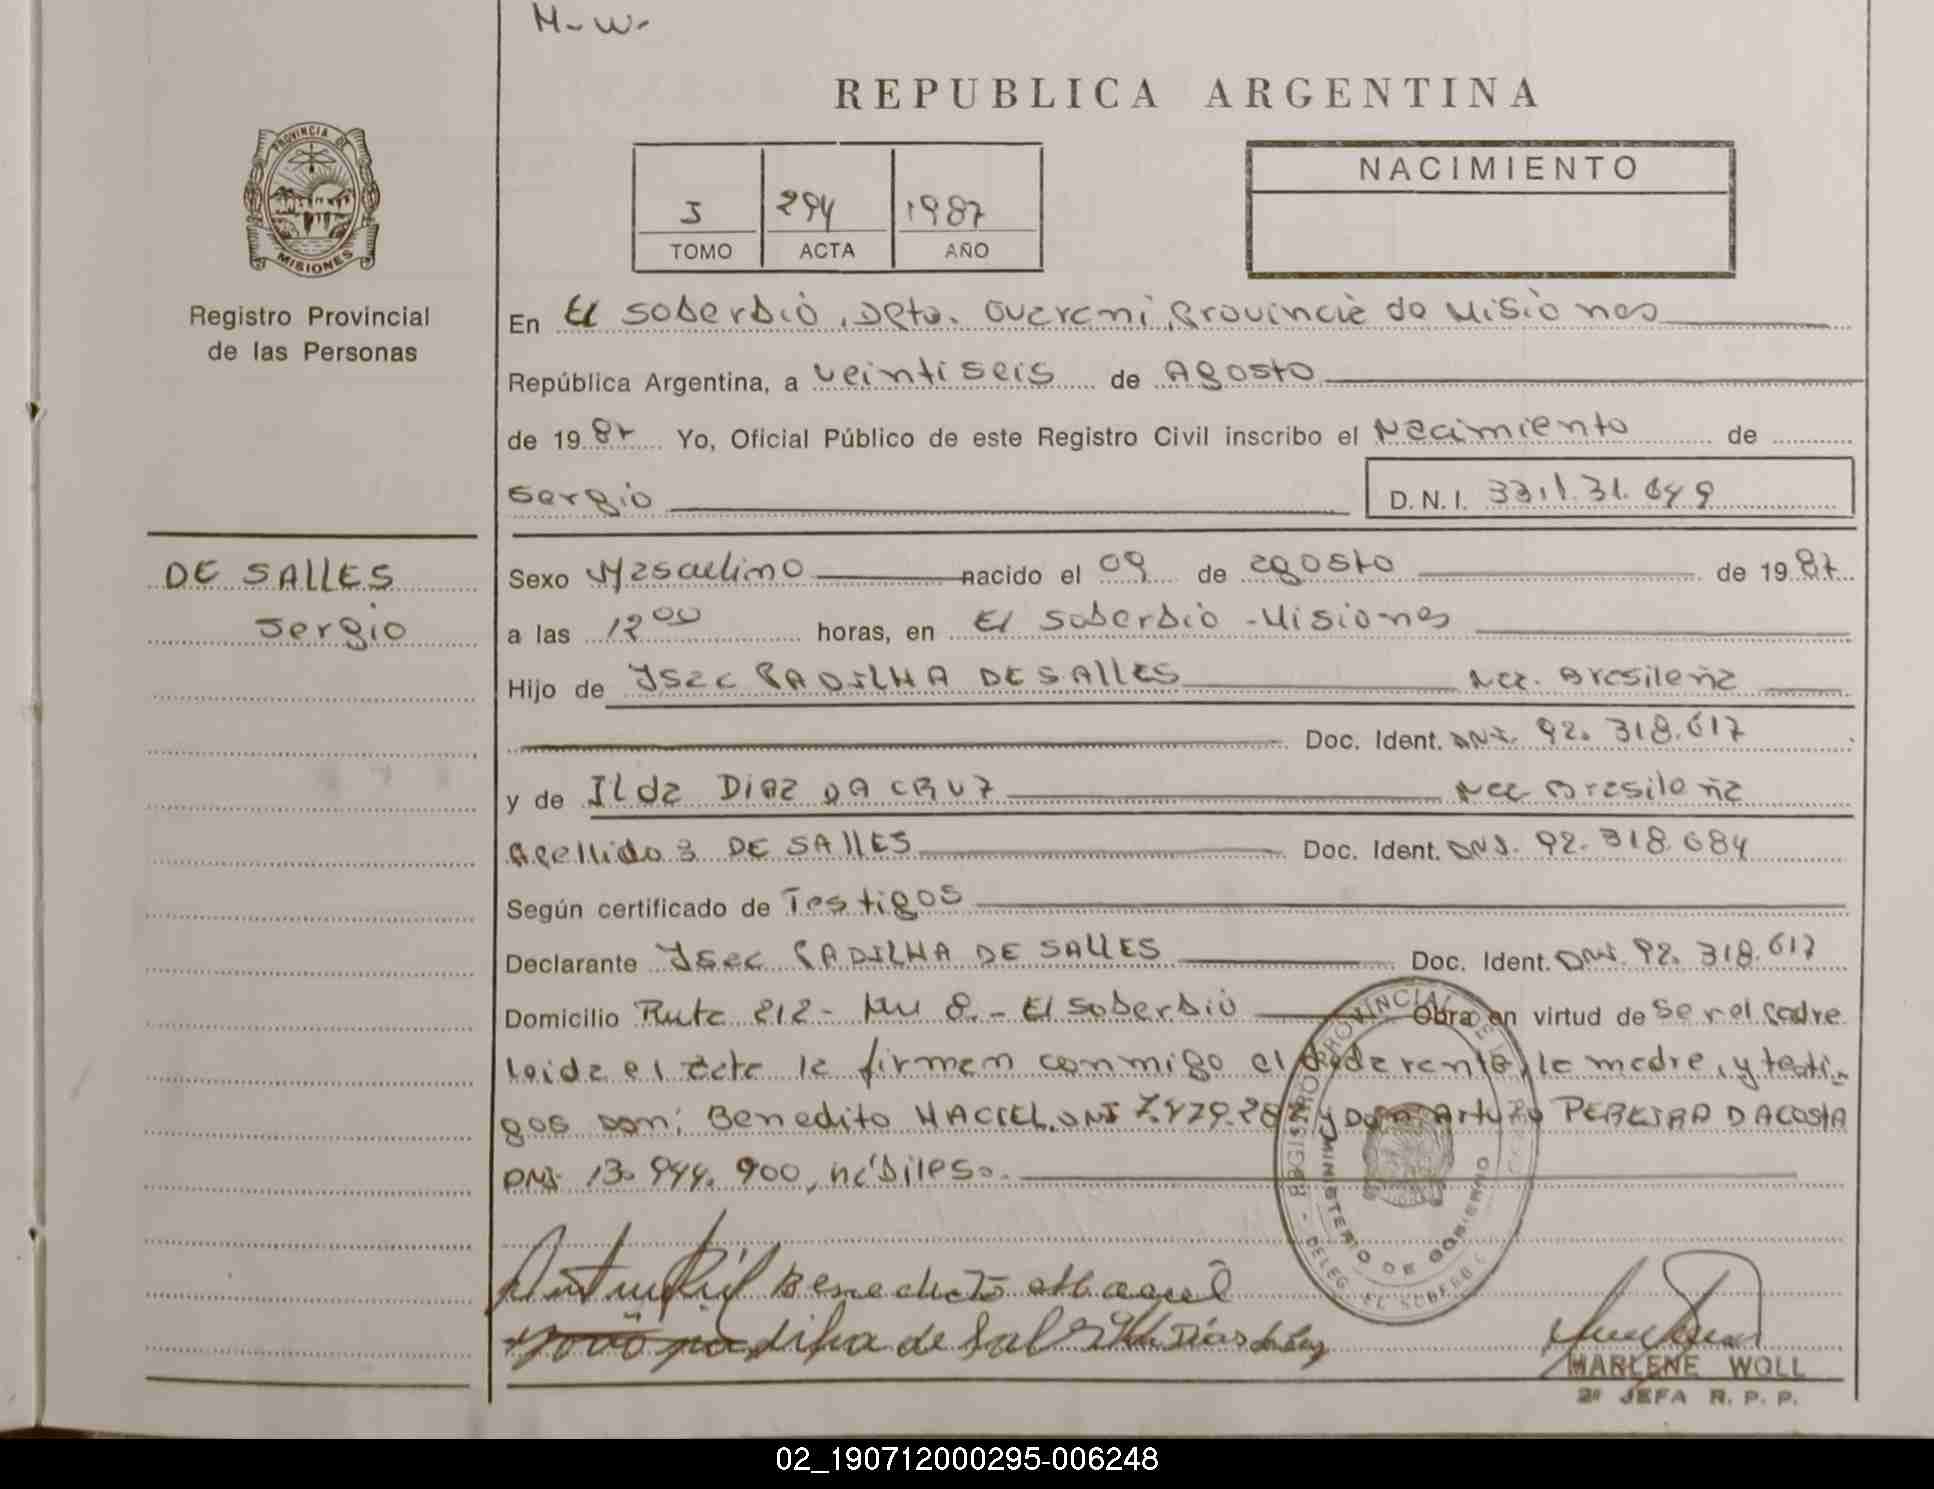 M-W-
REPUBLICA ARGENTINA
PROVINCIA DE MISIONES
Registro Provincial
de las Personas
I 294 1987
TOMO ACTA AÑO
NACIMIENTO
En El Soberbio, Dpto. Guarani, Provincia de Misiones
República Argentina, a veintiseis de Agosto
de 1987 Yo, Oficial Público de este Registro Civil inscribo el Nacimiento de
Sergio D.N.I.
DE SALLES
Sergio
Sexo Masculino nacido el 09 de agosto de 1987
a las 12 00 horas, en El Soberbio - Misiones
Hijo de Isac PADILHA DE SALLES Nac. Brasileña
Doc. Ident. DNI. 92.318.617
y de Ilda DIAZ DA CRUZ Nac Brasileña
Apellido 3 DE SALLES Doc. Ident. DNI. 92.318.684
Según certificado de Testigos
Declarante Isac PADILHA DE SALLES Doc. Ident. DNI. 92.318.617
Domicilio Ruta 212 - Km 8. - El Soberbio Obra en virtud de Ser el padre
leida el acta la firman conmigo el declarante, la madre, y testi-
gos son: Benedito MACIEL. DNI 7.479.287 y Don Arturo PEREIRA DACOSTA
DNI 13.944.900, hábiles.
REGISTRO PROVINCIAL DE
MINISTERIO DE GOBIERNO
DELEG. EL SOBERBIO
Benedicto Maciel
padilha de Sal Ilda Dias da Cruz
MARLENE WOLL
2ª JEFA R. P. P.
02_190712000295-006248